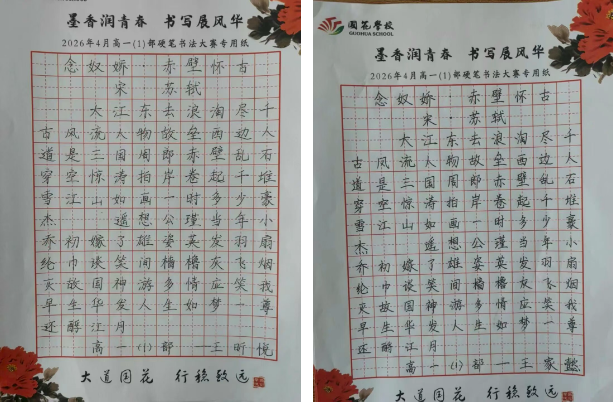 墨香润青春 书写展风华
2026年4月高一(1)部硬笔书法大赛专用纸
念奴娇·赤壁怀古
宋 苏轼
大江东去浪淘尽千
古风流人物故垒西边人
道是三国周郎赤壁乱石
穿空惊涛拍岸卷起千堆
雪江山如画一时多少豪
杰 遥想公瑾当年小
乔初嫁了雄姿英发羽扇
纶巾谈笑间樯橹灰飞烟
灭故国神游多情应笑我
早生华发人生如梦一尊
还酹江月
高一(1)部—王昕悦
大道国花 行稳致远
国花学校
GUOHUA SCHOOL
墨香润青春 书写展风华
2026年4月高一(1)部硬笔书法大赛专用纸
念奴娇 赤壁怀古
宋·苏轼
大江东去浪淘尽千
古风流人物故垒西边人
道是三国周郎赤壁乱石
穿空惊涛拍岸卷起千堆
雪江山如画一时多少豪
杰 遥想公瑾当年小
乔初嫁了雄姿英发羽扇
纶巾谈笑间樯橹灰飞烟
灭故国神游多情应笑我
早生华发人生如梦一尊
还酹江月
高一(1)部—王家懿
大道国花 行稳致远